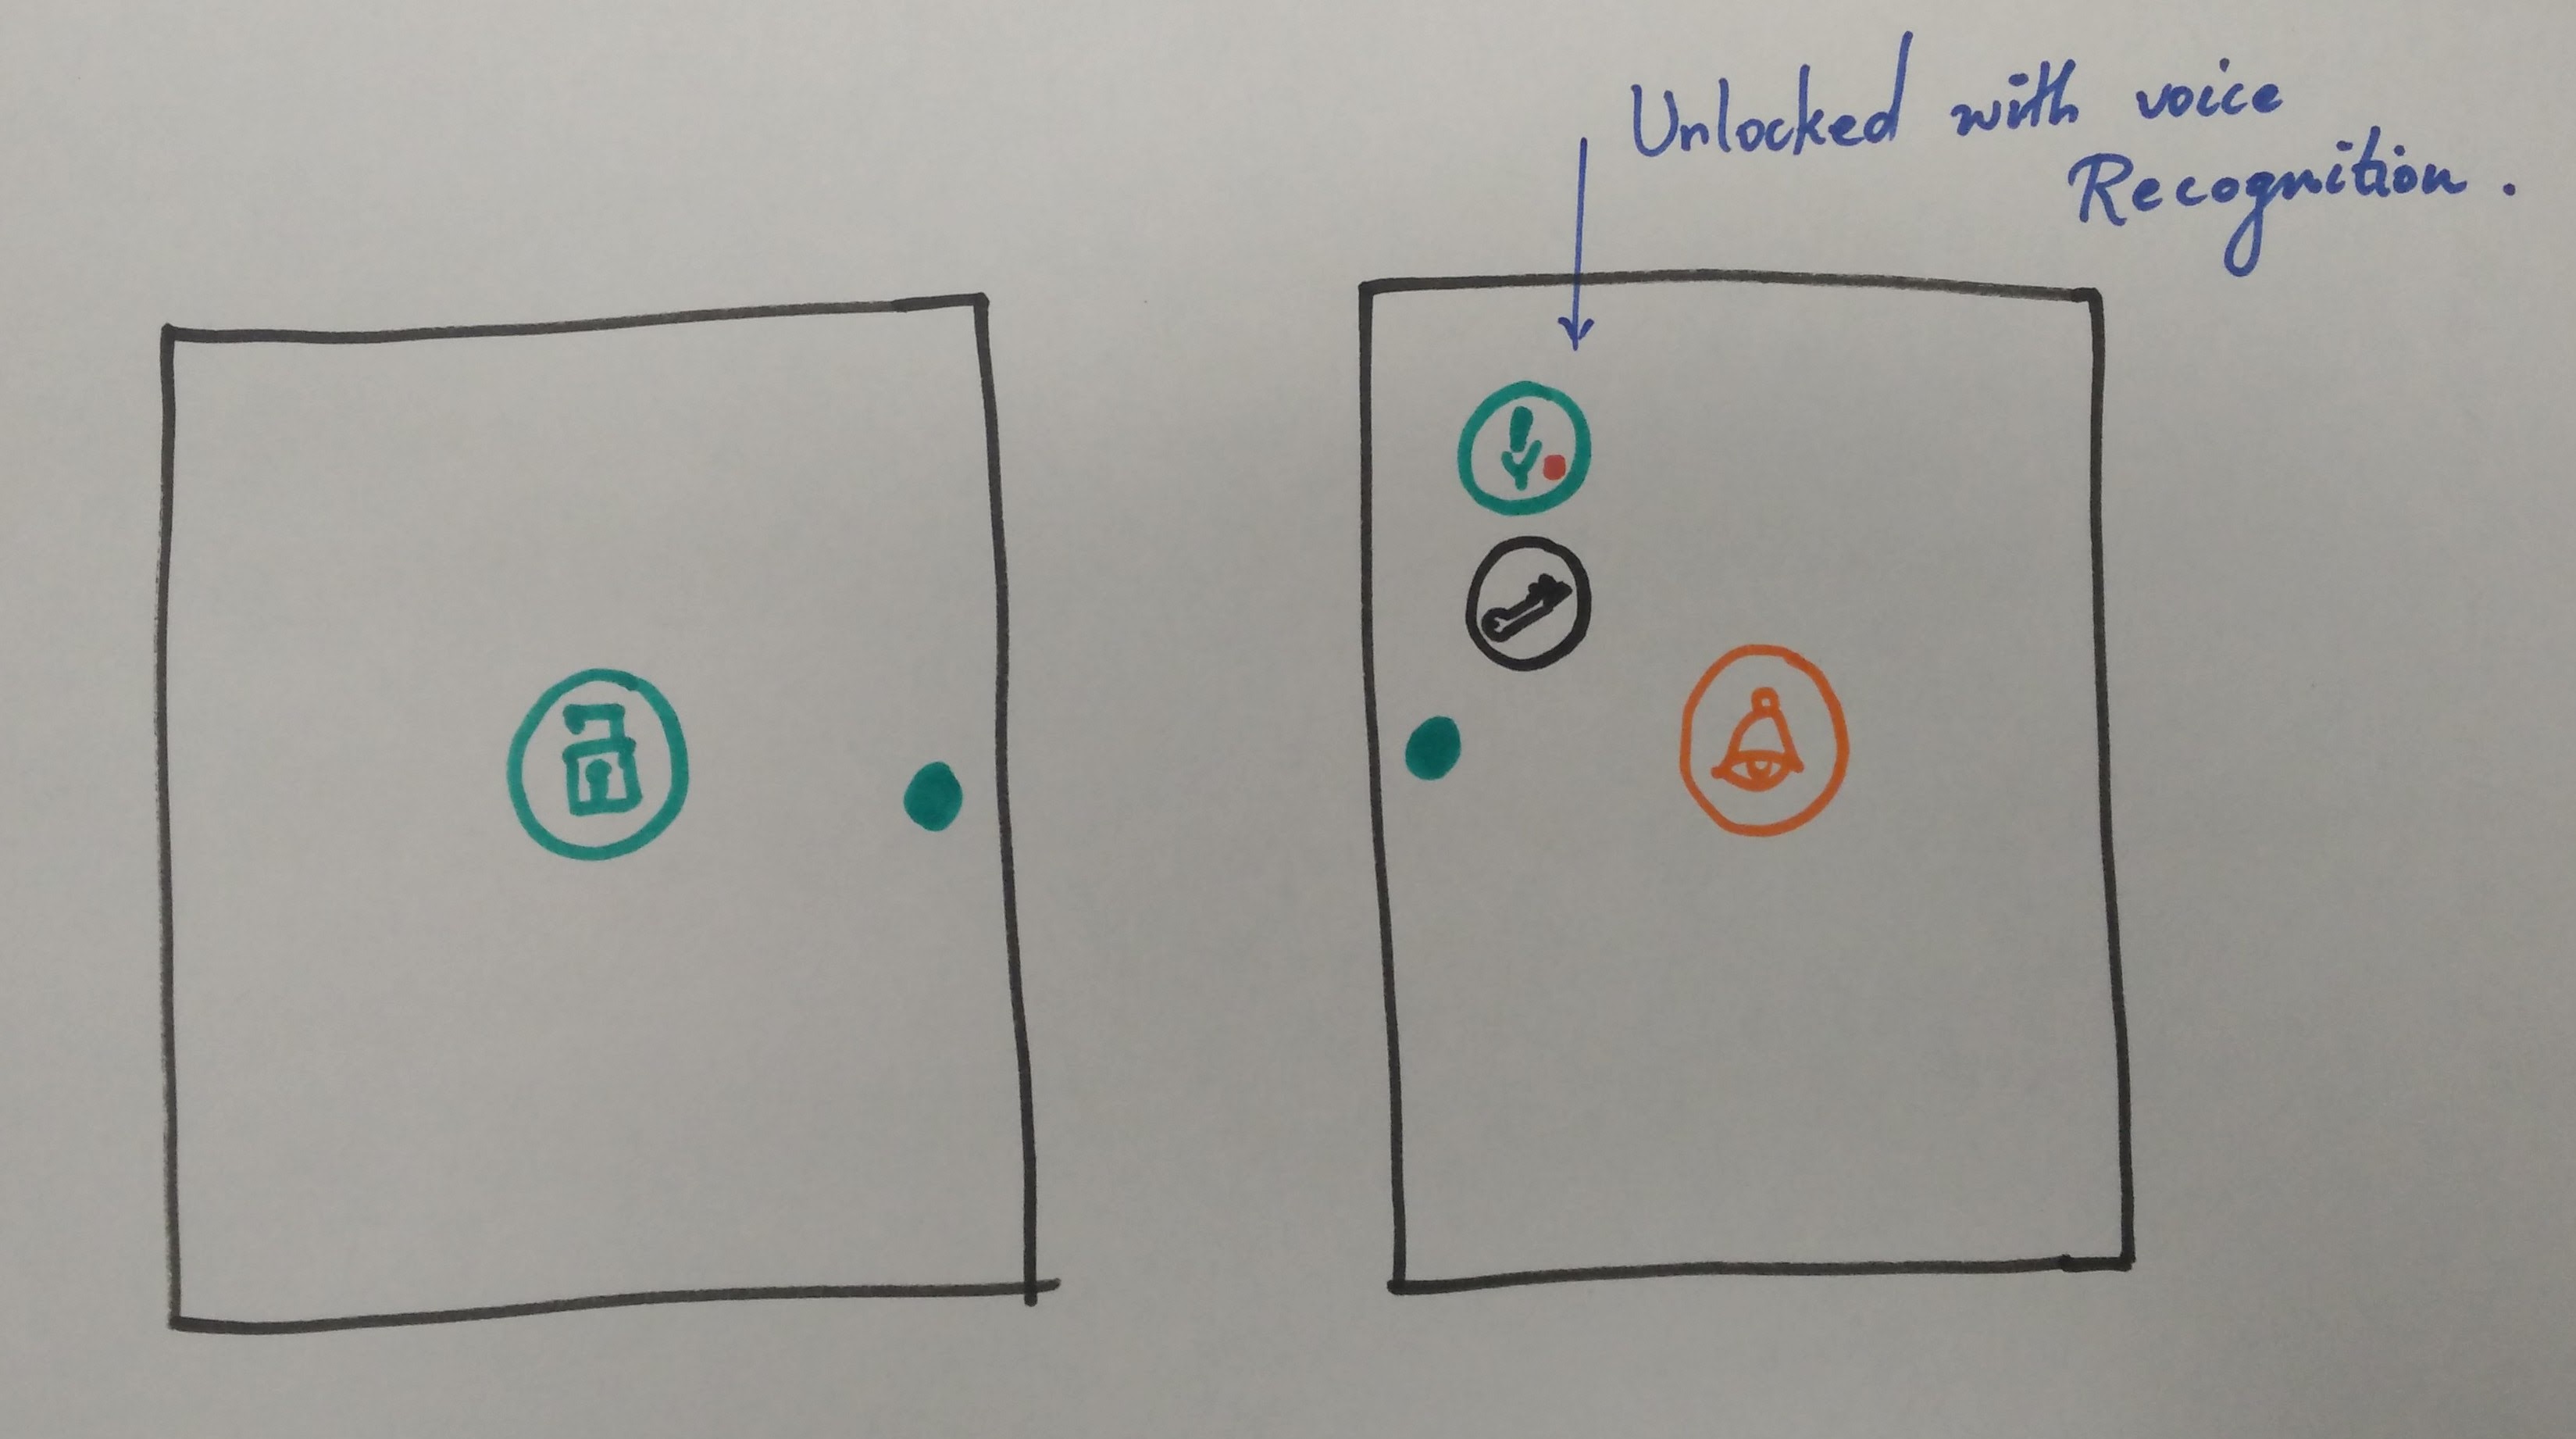 Unlocked with voice
Recognition.